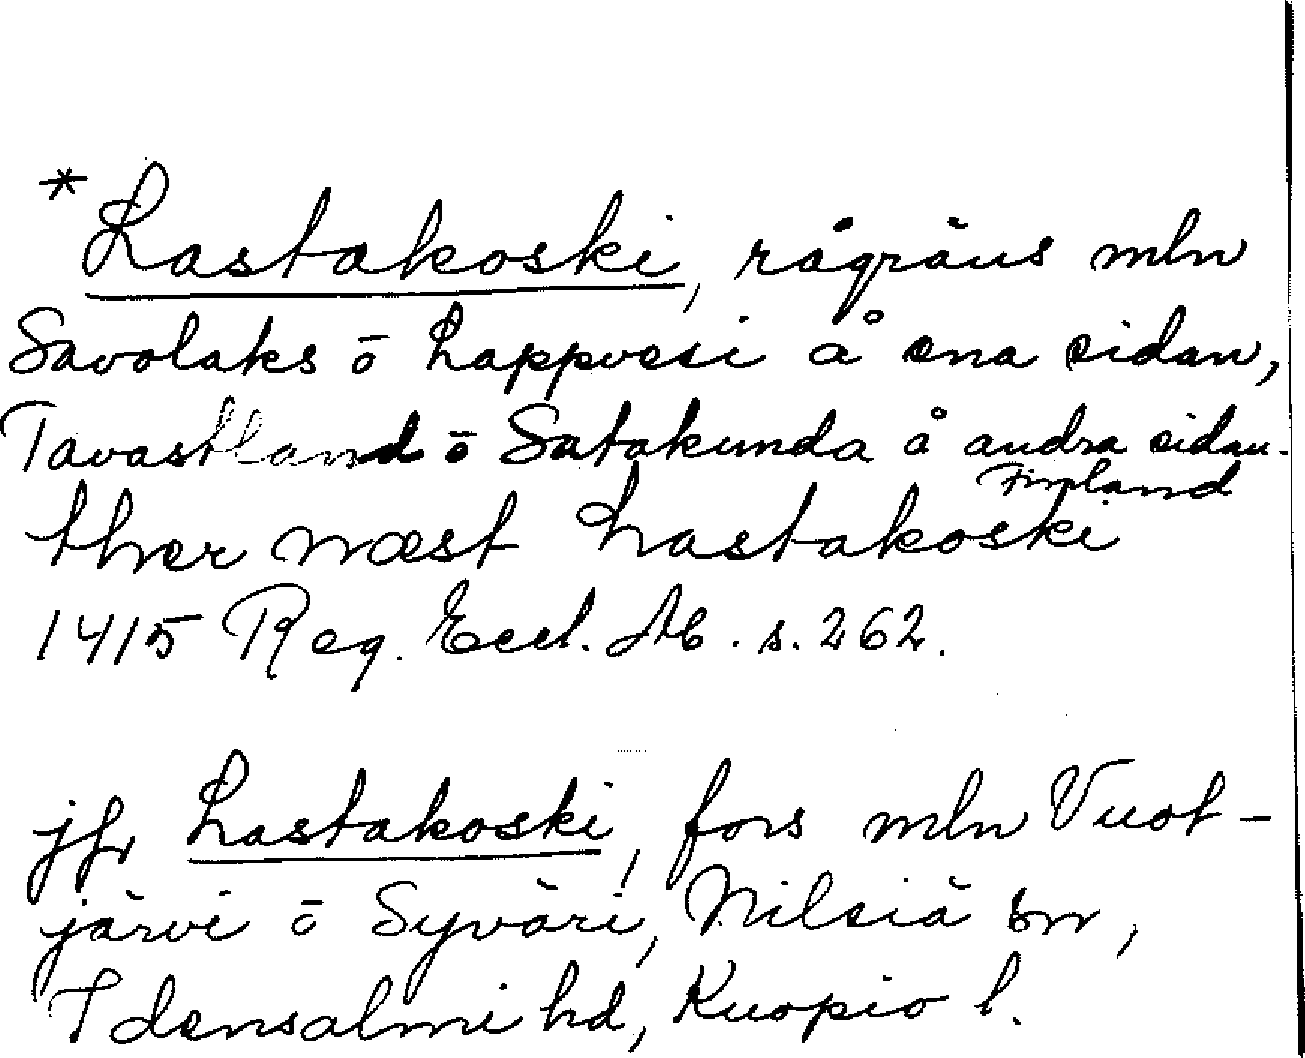 * Lastakoski, rågräns mln
Savolaks ō Lappvesi å ena sidan,
Tavastland ō Satakunda å andra sidan.
Finland
ther næst Lastakoski
1415 Reg. Eccl. Ab. s. 262.
jfr Lastakoski, fors mln Vuot-
järvi ō Syväri, Nilsiä sn,
Idensalmi hd, Kuopio l.